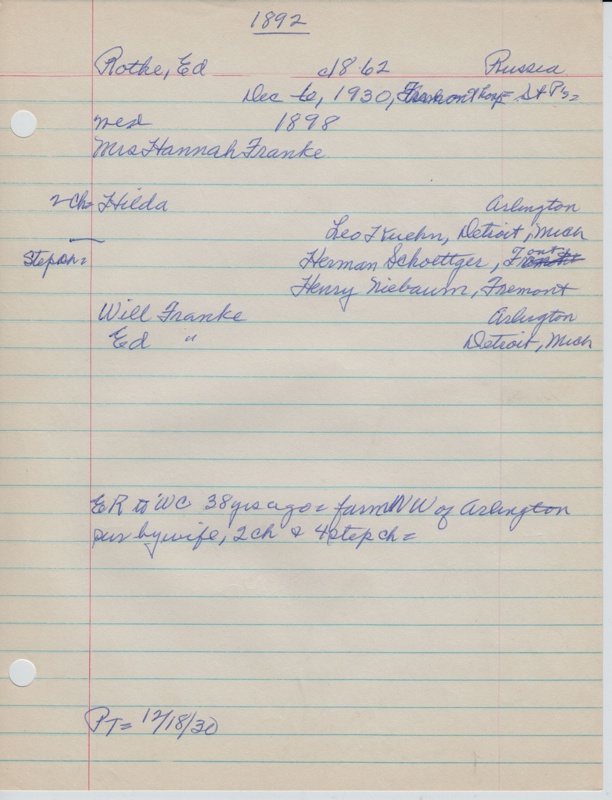 1892
Rothe, Ed c18 62 Russia
Dec 6, 1930, St P's=
wed 1898
Mrs Hannah Franke
2 ch= Hilda Arlington
Leo Kuehn, Detroit, Mich
Step ch= Herman Schoettger, Font
Henry Niebaum, Fremont
Will Franke Arlington
Ed " Detroit, Mich
ER to WC 38 yrs ago= farm NW of Arlington
sur by wife, 2 ch & 4 step ch=
PT= 12/18/30